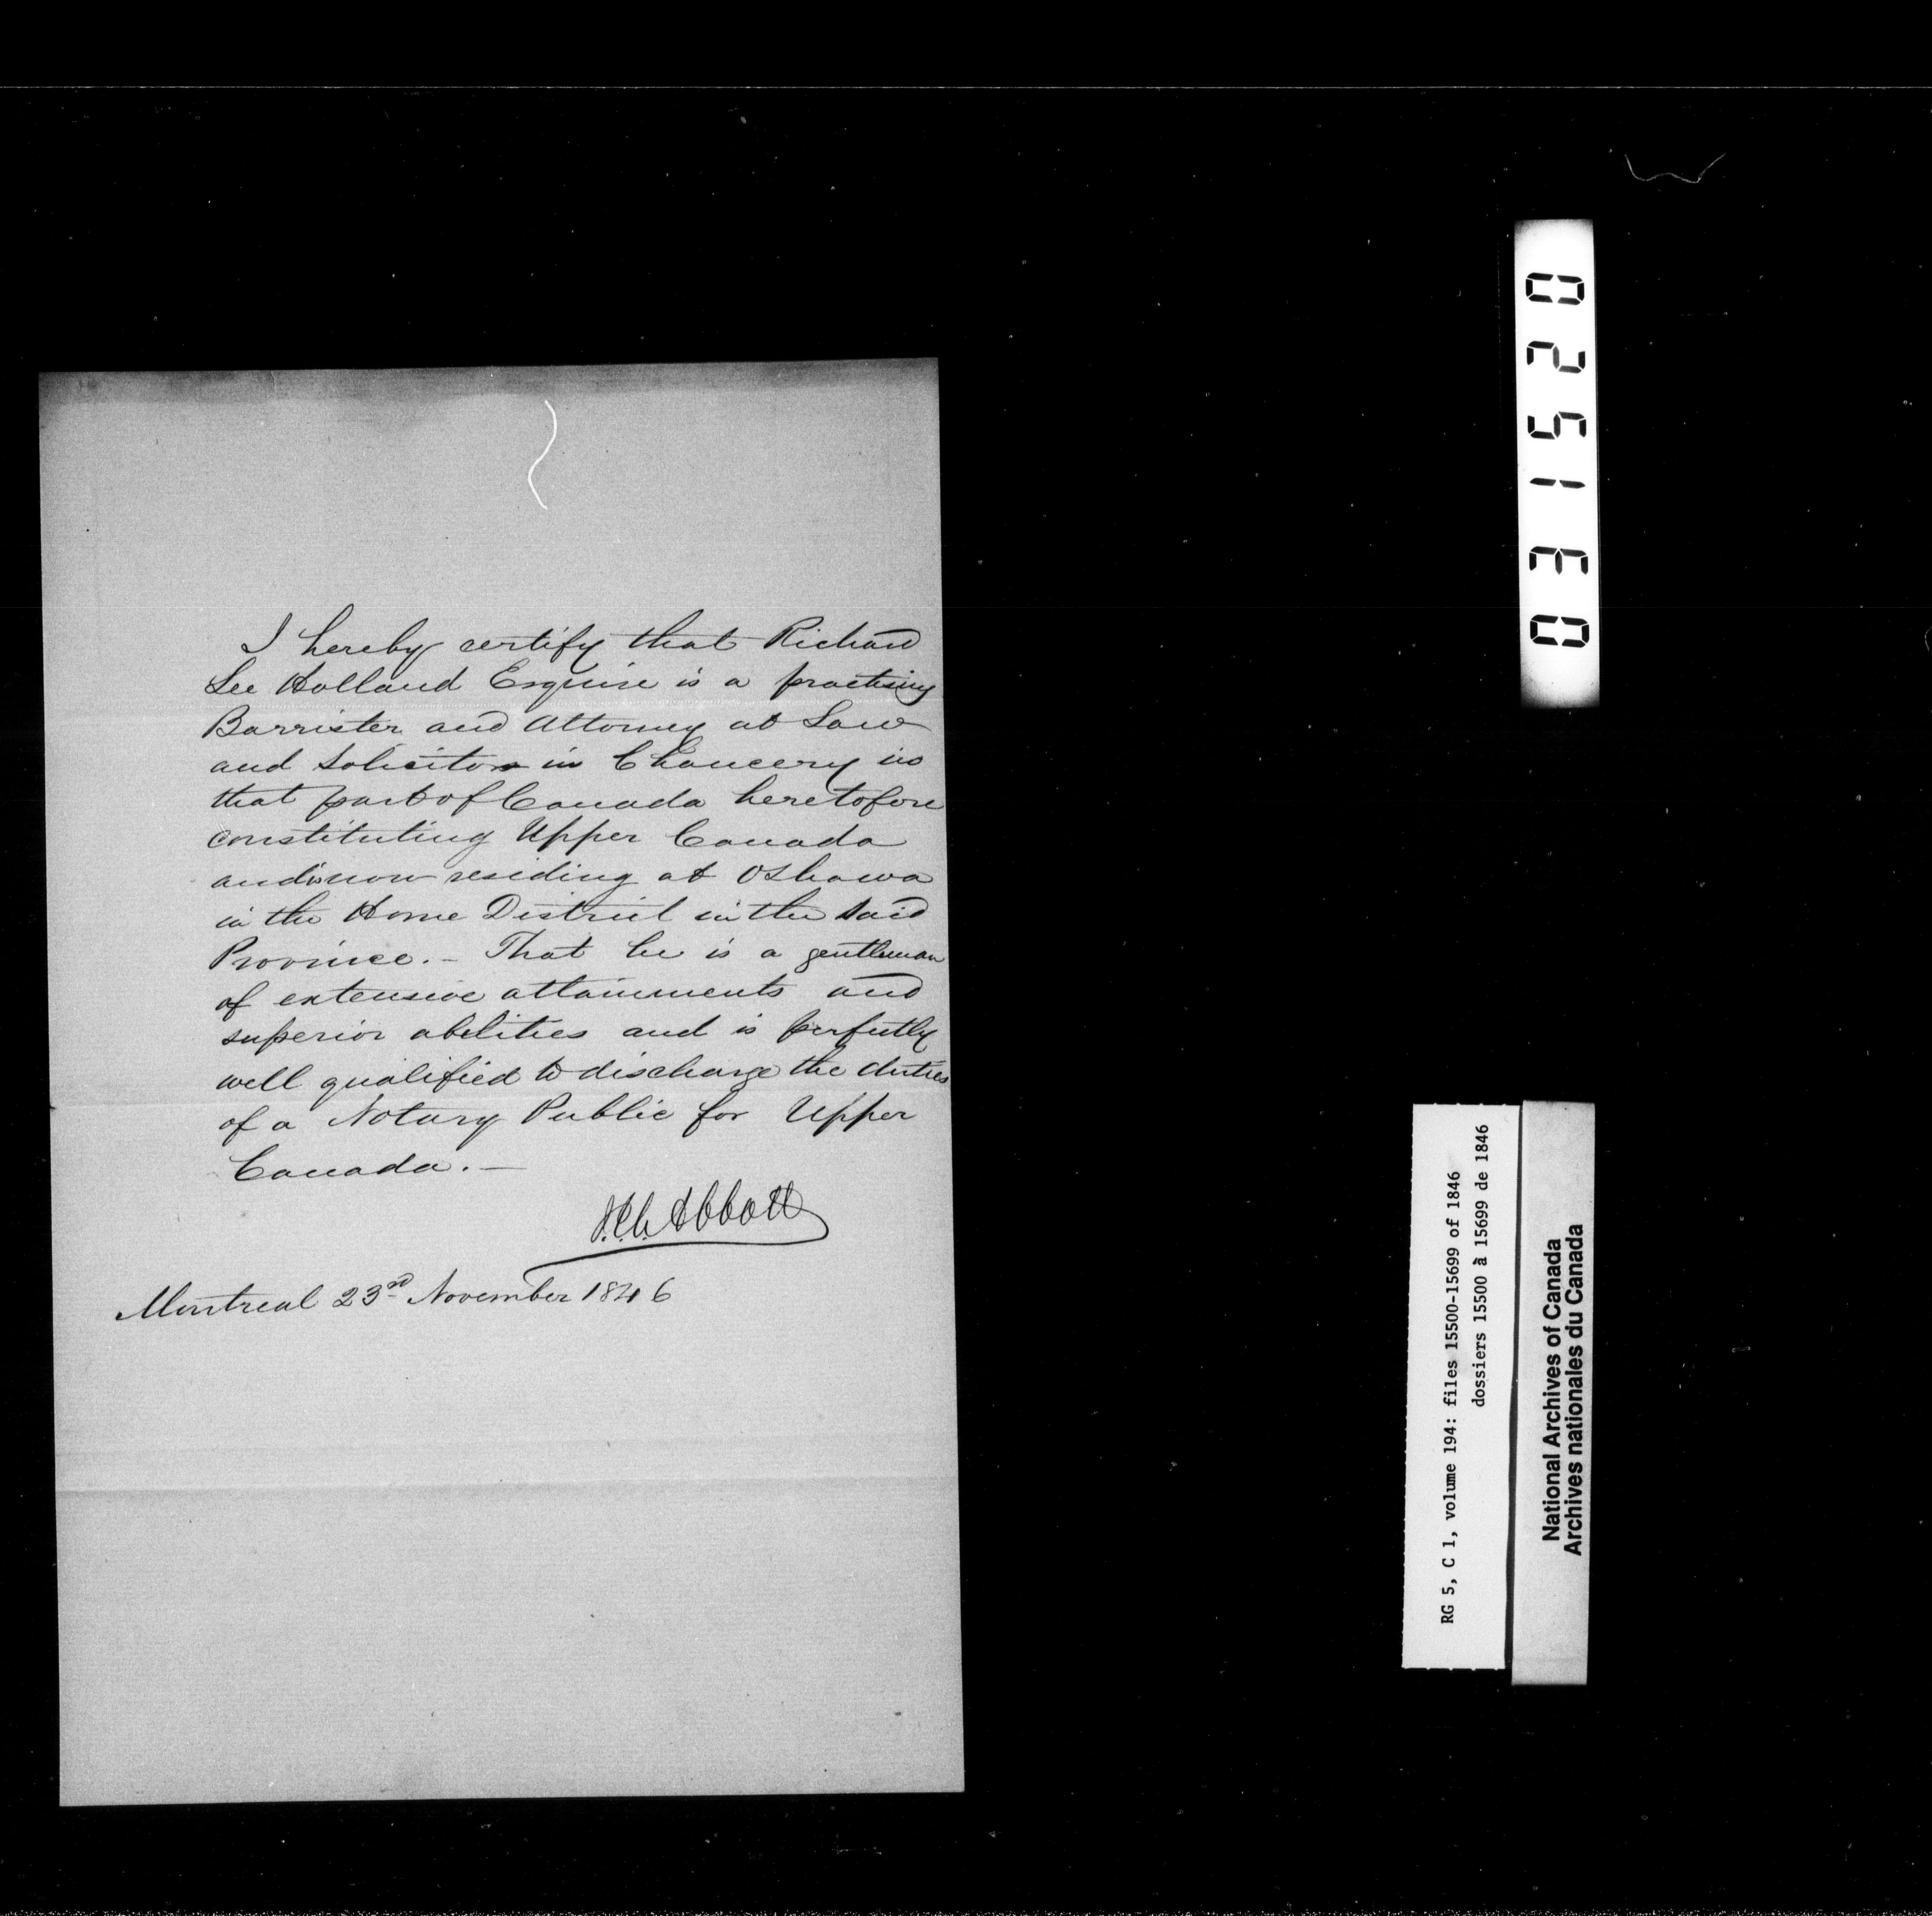 I hereby certify that Richard
Lee Holland Esquire is a practising
Barrister and Attorney at Law
and Solicitor in Chancery in
that part of Canada heretofore
constituting Upper Canada
and is now residing at Oshawa
in the Home District in the said
Province. - That he is a gentleman
of extensive attainments and
superior abilities and is perfectly
well qualified to discharge the duties
of a Notary Public for Upper
Canada. —
J.J.C. Abbott
Montreal 23rd November 1846
025130
RG 5, C 1, volume 194: files 15500-15699 of 1846
dossiers 15500 à 15699 de 1846
National Archives of Canada
Archives nationales du Canada